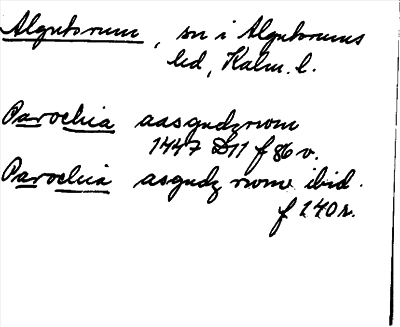 Algutsrum, sn i Algutsrums
hd, Kalm. l.
Parochia aasgudzrwm
1447 D11 f 86 v.
Parochia asgudz rwme ibid.
f 140 r.